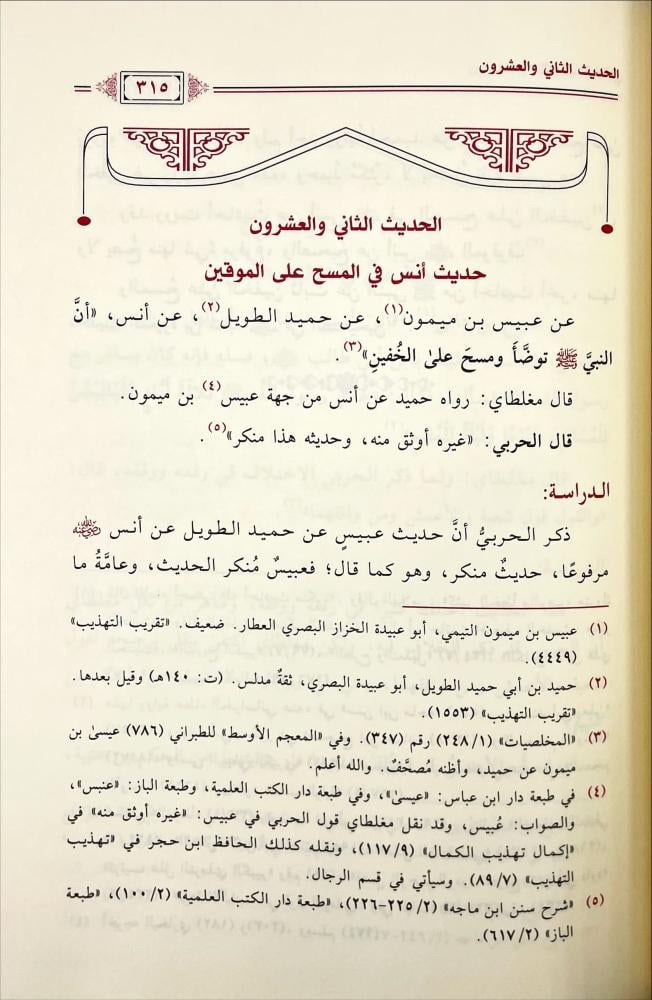 الحديث الثاني والعشرون
٣١٥
الحديث الثاني والعشرون
حديث أنس في المسح على الموقين
عن عبيس بن ميمون(١)، عن حميد الطويل(٢)، عن أنس، «أنَّ
النبيَّ ﷺ توضَّأَ ومسحَ علىٰ الخُفينِ»(٣)
قال مغلطاي: رواه حميد عن أنس من جهة عبيس(٤) بن ميمون.
قال الحربي: «غيره أوثق منه، وحديثه هذا منكر»(٥).
الدراسة:
ذكر الحربيُّ أنَّ حديث عبيسٍ عن حميد الطويل عن أنس رضي الله عنه
مرفوعًا، حديثٌ منكر، وهو كما قال؛ فعبيسٌ مُنكر الحديث، وعامَّةُ ما
(١) عبيس بن ميمون التيمي، أبو عبيدة الخزاز البصري العطار. ضعيف. «تقريب التهذيب»
(٤٤٤٩).
(٢) حميد بن أبي حميد الطويل، أبو عبيدة البصري، ثقةٌ مدلس. (ت: ١٤٠هـ) وقيل بعدها.
«تقريب التهذيب» (١٥٥٣).
(٣) «المخلصيات» (٢٤٨/١) رقم (٣٤٧). وفي «المعجم الأوسط» للطبراني (٧٨٦) عيسىٰ بن
ميمون عن حميد، وأظنه مُصحَّفٌ. والله أعلم.
(٤) في طبعة دار ابن عباس: «عيسىٰ»، وفي طبعة دار الكتب العلمية، وطبعة الباز: «عنبس»،
والصواب: عُبيس، وقد نقل مغلطاي قول الحربي في عبيس: «غيره أوثق منه» في
«إكمال تهذيب الكمال» (١١٧/٩)، ونقله كذلك الحافظ ابن حجر في «تهذيب
التهذيب» (٨٩/٧). وسيأتي في قسم الرجال.
(٥) «شرح سنن ابن ماجه» (٢٢٥/٢-٢٢٦)، «طبعة دار الكتب العلمية» (١٠٠/٢)، «طبعة
الباز» (٦١٧/٢).